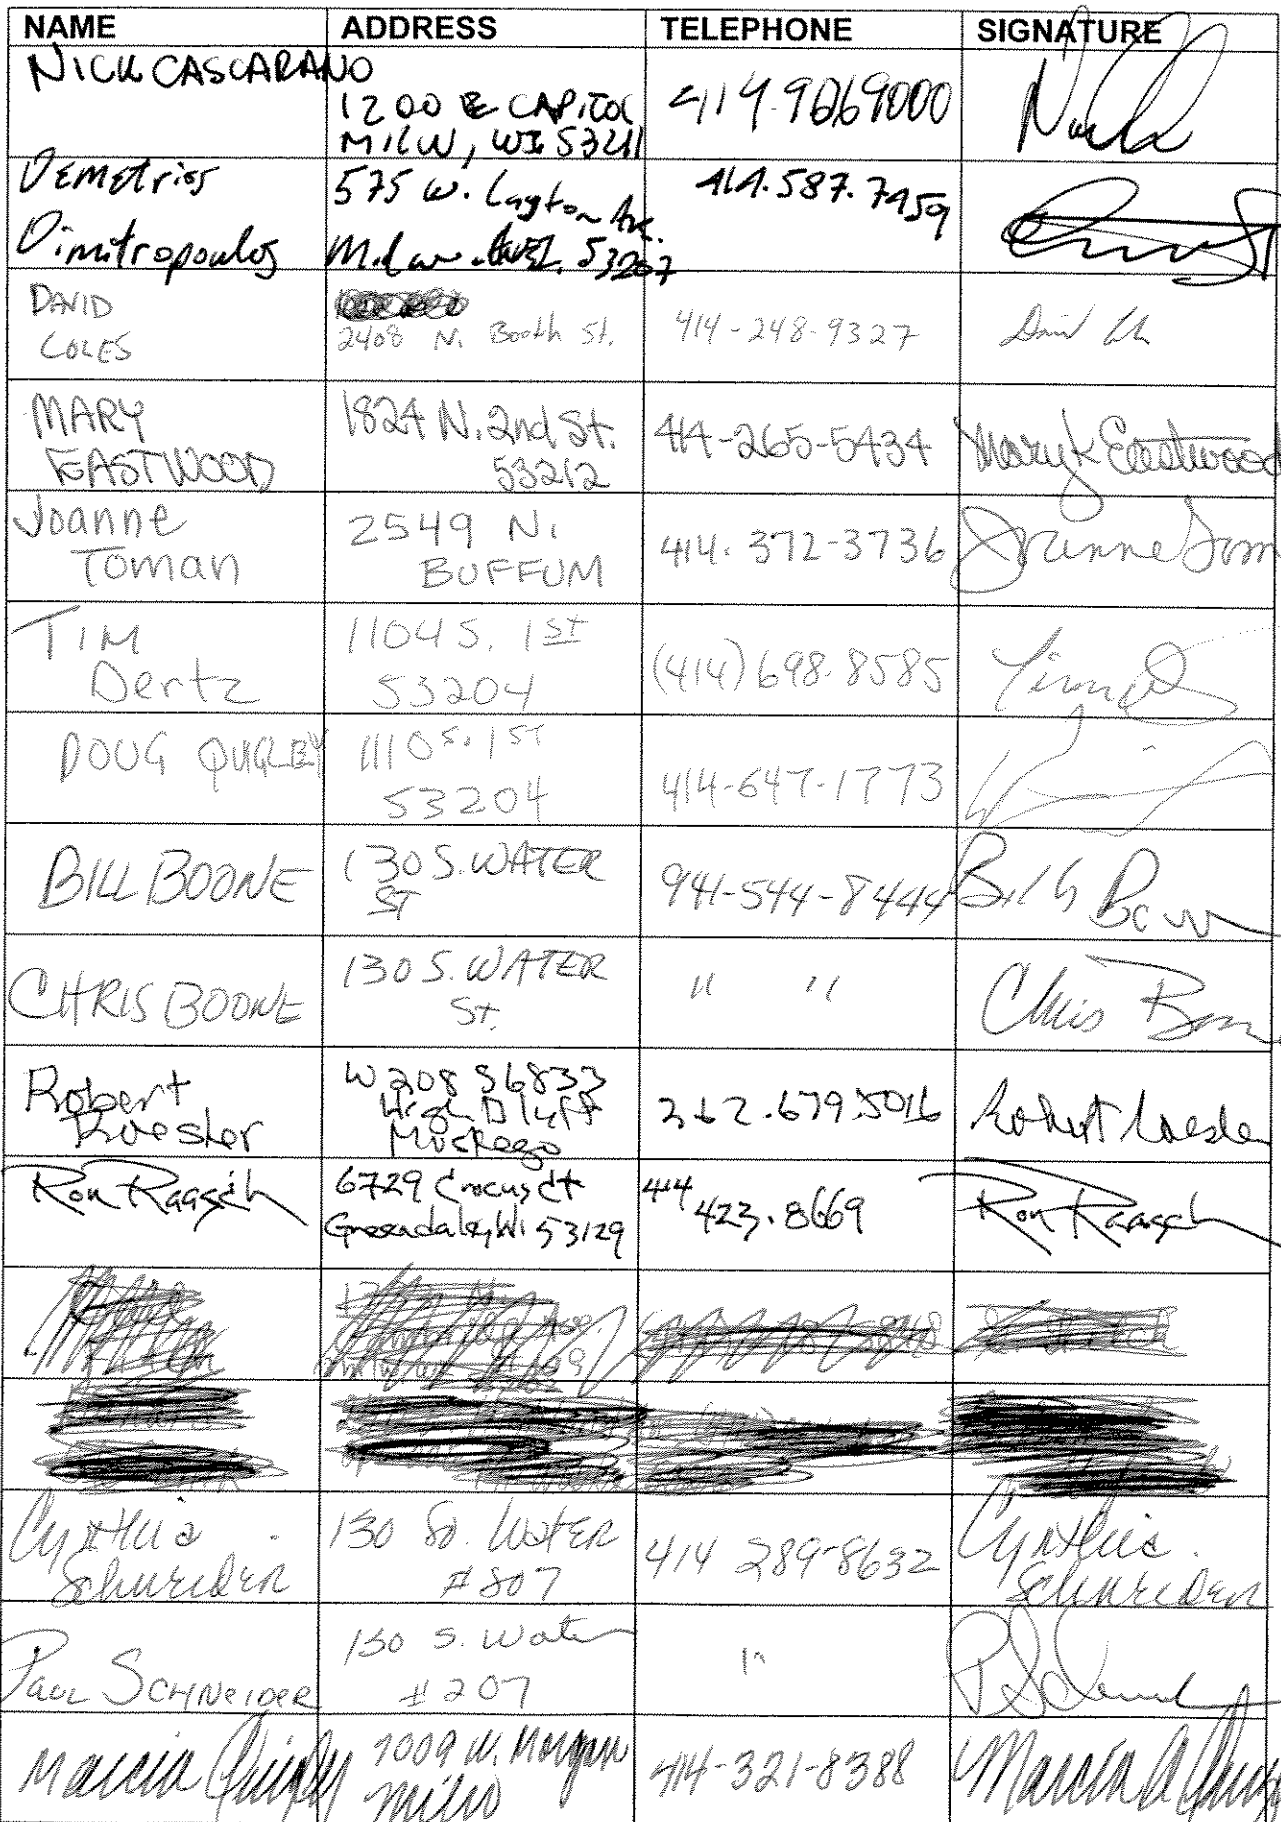 NAME ADDRESS TELEPHONE SIGNATURE
NICK CASCARANO
1200 E CAPITOL
MILW, WI 53211
414-9069000
Demetrios
Dimitropoulos
575 W. Layton Ave.
53207
414.587.7459
DAVID
COLES
2408 N. Booth St.
414-248-9327
MARY
EASTWOOD
1824 N. 2nd St.
53212
414-265-5434
Mary K Eastwood
Joanne
Toman
2549 N.
BUFFUM
414. 372-3736
Joanne Tom
TIM
Dertz
1104 S. 1st
53204
(414) 698-8585
DOUG QUIGLEY
1110 S. 1ST
53204
414-647-1773
BILL BOONE
130 S. WATER
ST
941-544-8444
CHRIS BOONE
130 S. WATER
St.
" "
Chris Boone
Robert
Roester
W208 S6833
High Bluff
Muskego
262.679.5016
Robert
Ron Raasch
6729 Crocus Ct
Greendale, Wi 53129
414
423.8669
Ron Raasch
Cynthia
Schneider
130 So. Water
#807
414 289-8632
Cynthia
Schneider
PAUL SCHNEIDER
130 S. Water
#207
"
Marcia Quigley
7009 W. Morgan
Milw
414-321-8388
Marcia A